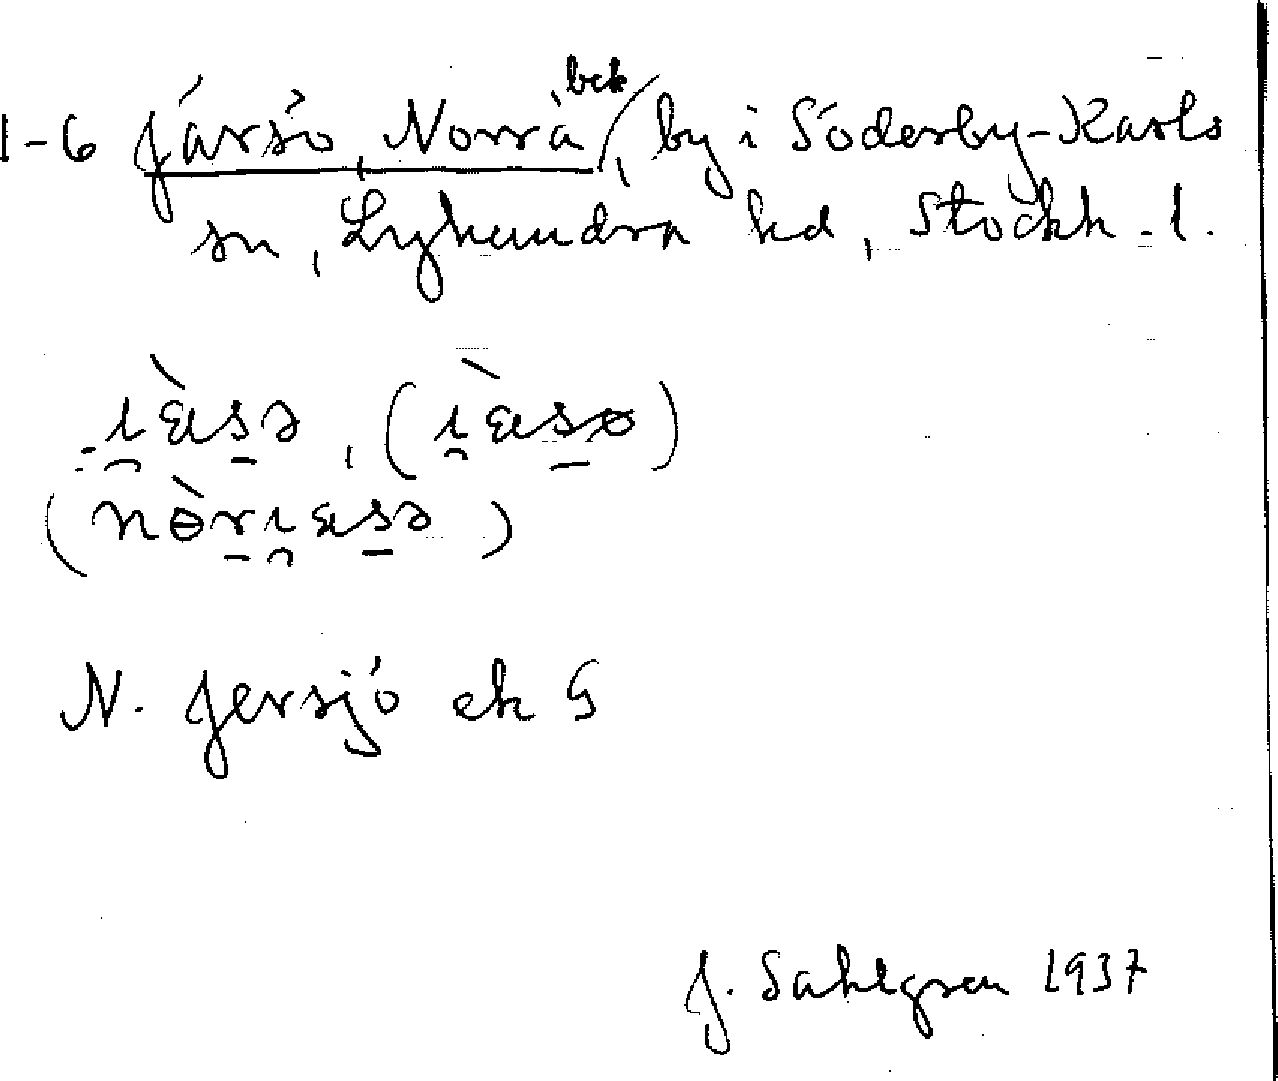 bek
1-6 Järsö, Norra, by i Söderby-Karls
sn, Lyhundra hd, Stockh. l.
-ı̯æ̀sə, (ı̯æ̀sø)
(nɵ̀rı̯æsə)
N. Jersjö ek 5
J. Sahlgren 1937